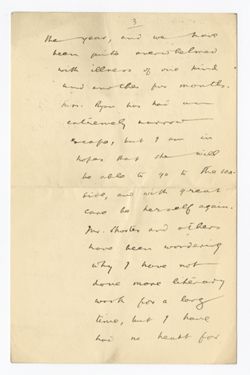 3
the year, and we have
been quite overwhelmed
with illness of one kind
and another for months.
Mrs. Ryan has had an
extremely narrow
escape, but I am in
hopes that she will
be able to go to the sea-
side, and with great
care be herself again.
Mr. Shorter and others
have been wondering
why I have not
done more literary
work for a long
time, but I have
had no heart for